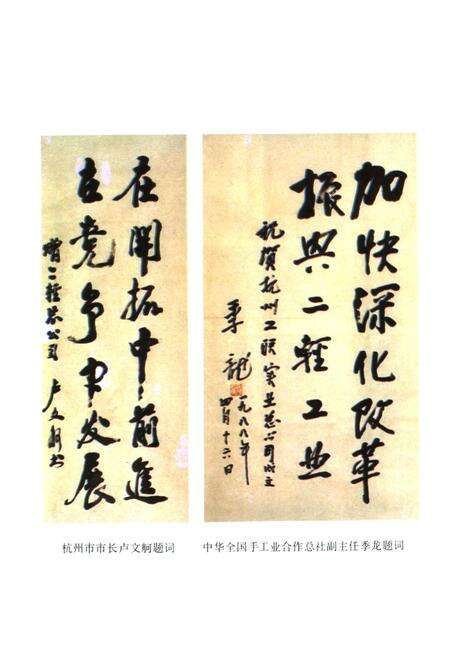 在開拓中前進
在竞争中发展
赠二轻总公司 卢文舸书
加快深化改革
振興二輕工业
祝贺杭州工联实业总公司成立
季龍
一九八八年
四月十六日
杭州市市长卢文舸题词
中华全国手工业合作总社副主任季龙题词